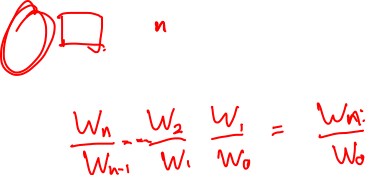 n
W_n / W_{n-1} -- W_2 / W_1 W_1 / W_0 = W_n: / W_0